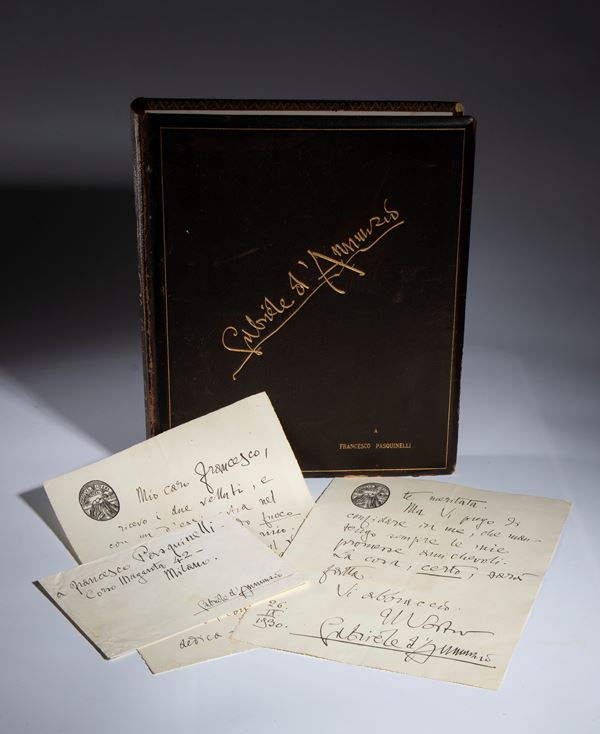 Gabriele d'Annunzio
A
FRANCESCO PASQUINELLI
Mio caro Francesco,
ricevo i due volumi, e
con un
a Francesco Pasquinelli -
Corso Magenta 42 -
Milano.
Gabriele d'Annunzio
dedica
te meritata.
Ma Vi prego di
confidare in me, che man-
tengo sempre le mie
promesse amichevoli.
La cosa, certo, sarà
fatta.
Vi abbraccio.
Il Vostro
Gabriele d'Annunzio
26.
1930.